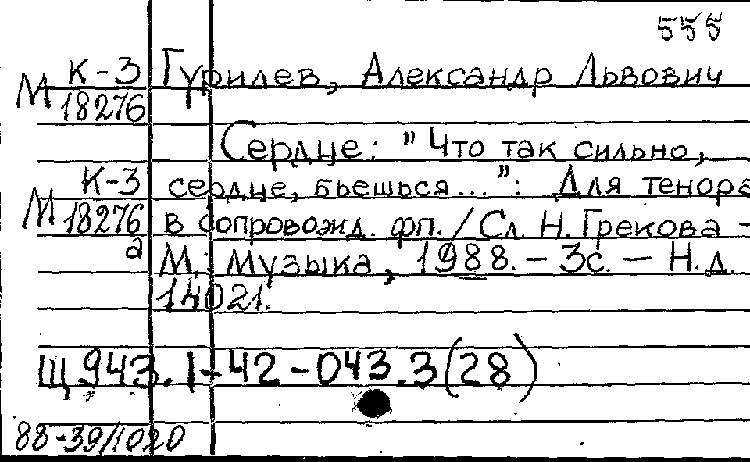 555
М К-3 18276 Гурилев, Александр Львович
Сердце: "Что так сильно,
М К-3 18276 а сердце, бьешься...": Для тенора
в сопровожд. фп. / Сл. Н. Грекова -
М.: Музыка, 1988. - 3с. - Н.д.
14021.
Щ 943.1-42-043.3(28)
88-39/1020